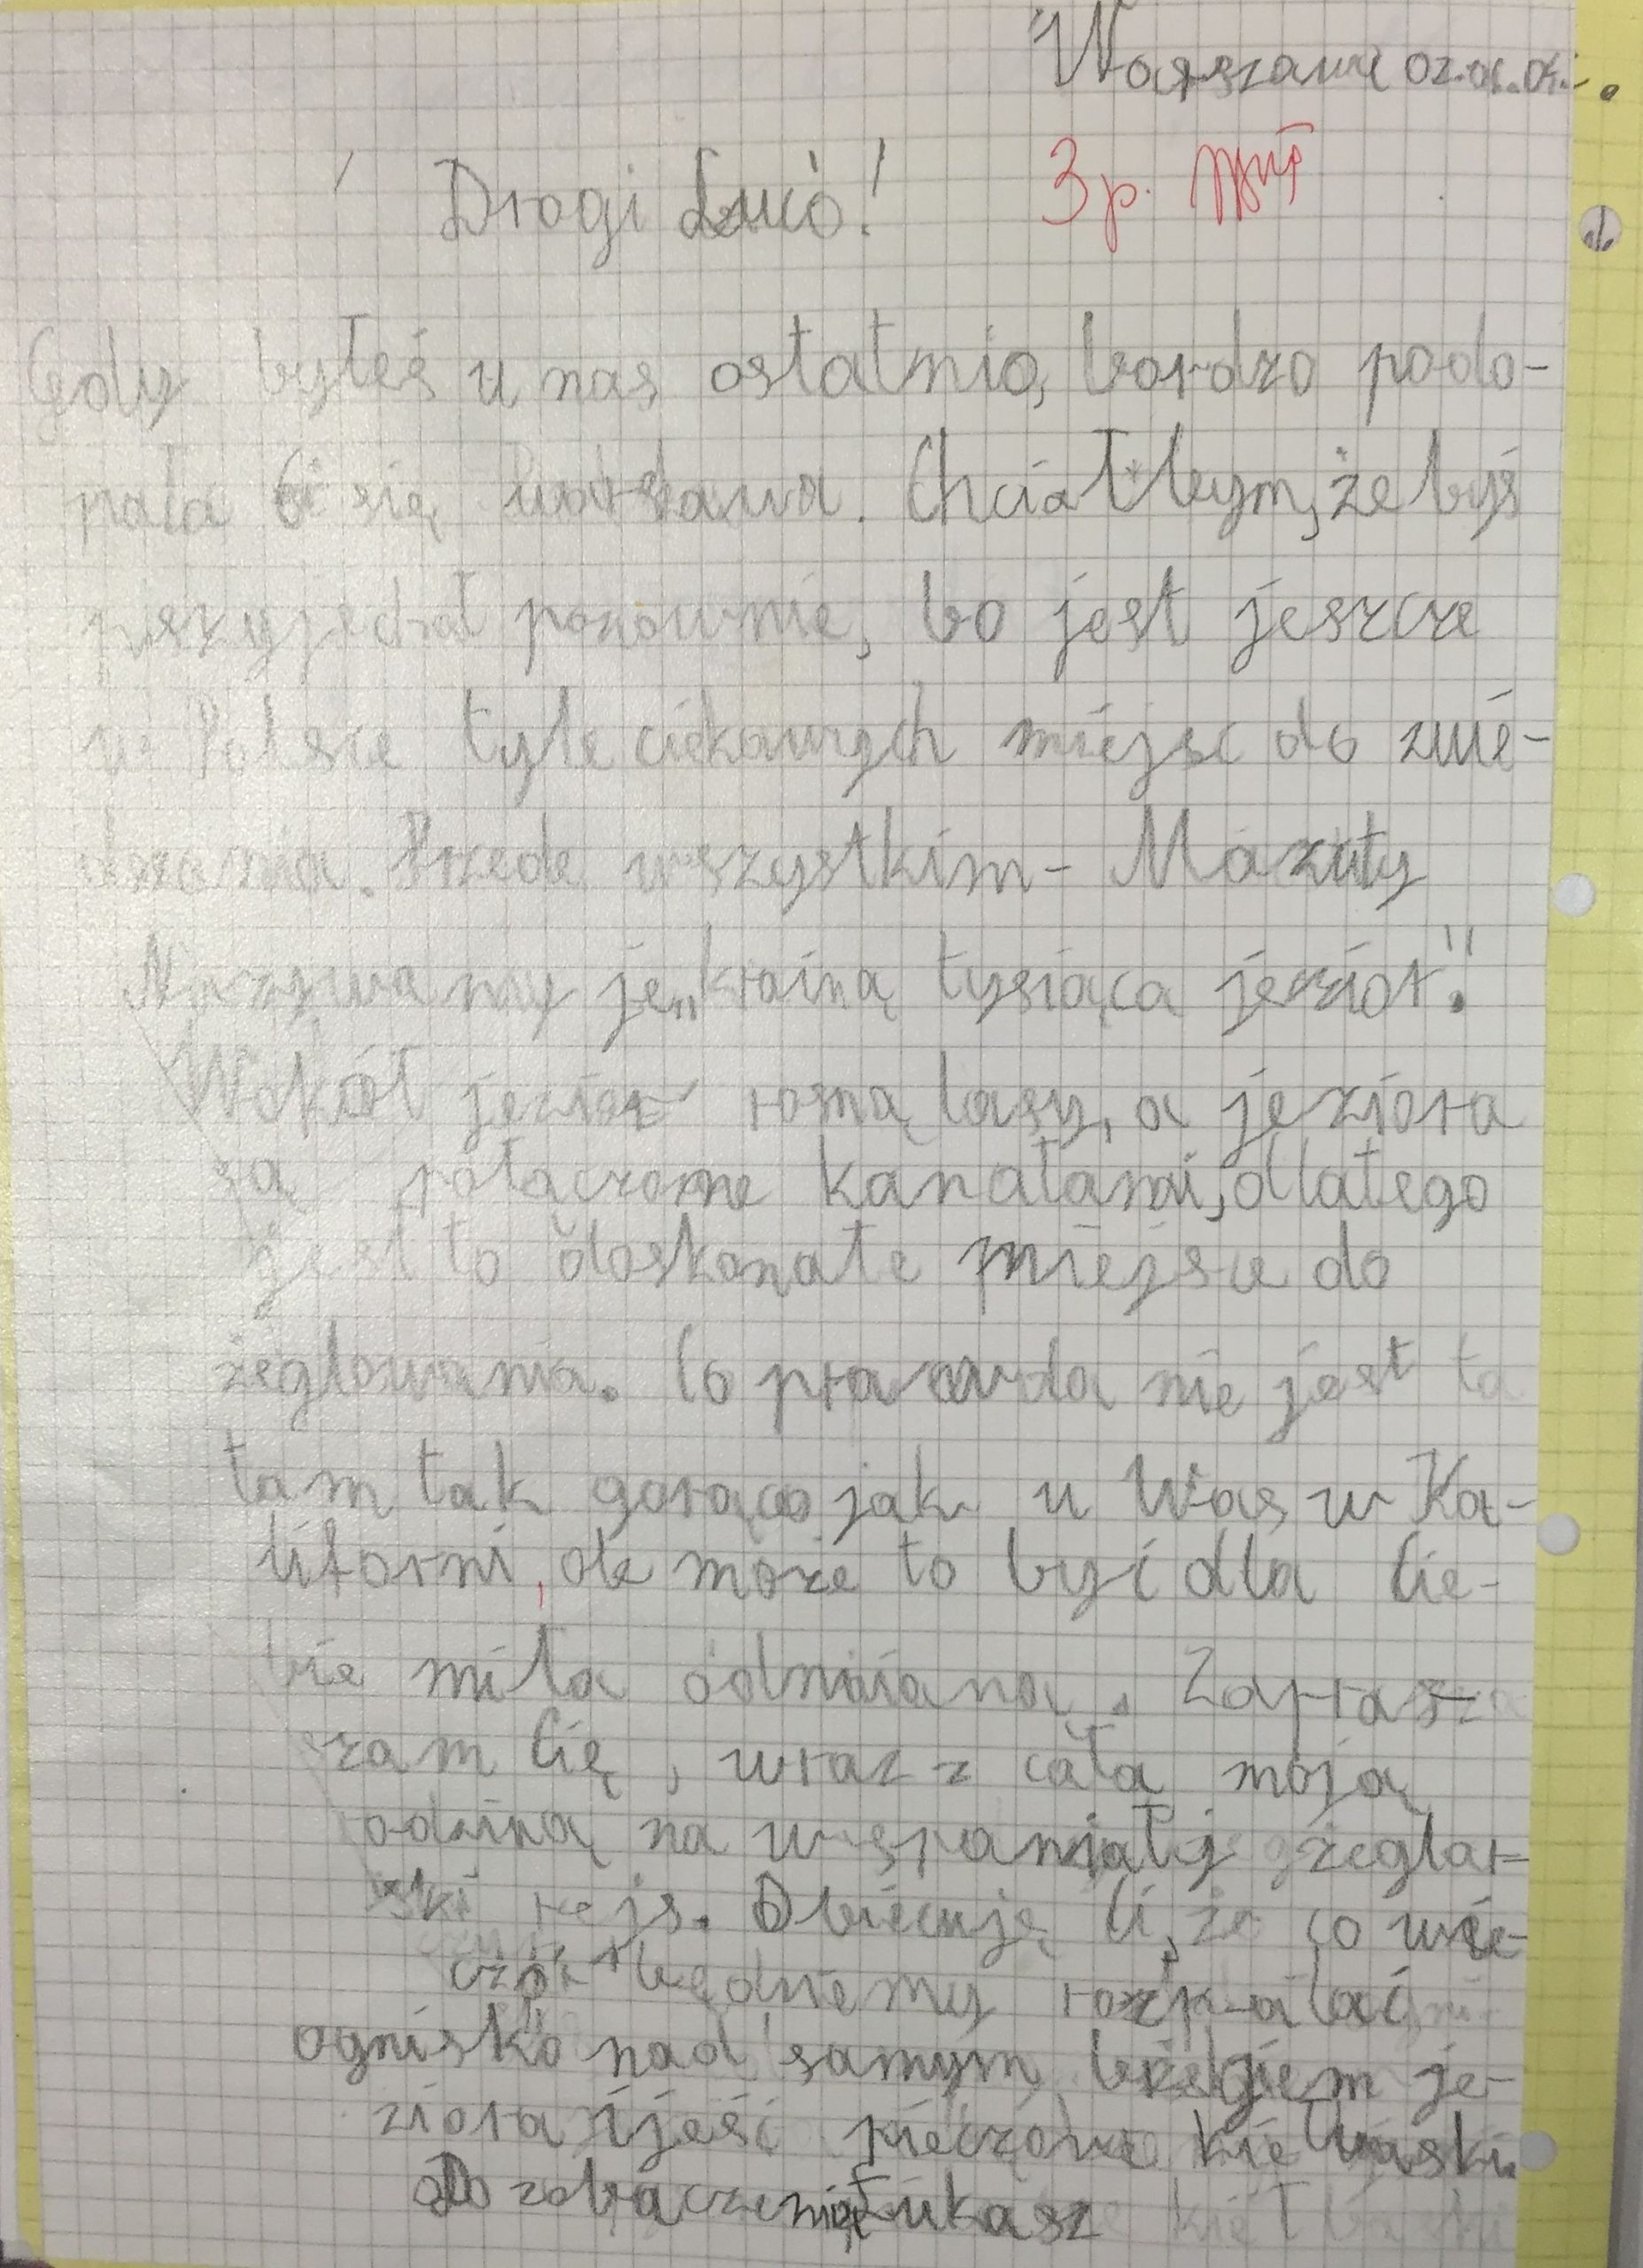 Warszawa 02.06.04.
Drogi
3p.
Gdy byłeś u nas ostatnio, bardzo podo-
pała Ci się warszawa. Chciałbym, żebyś
przyjechał ponownie, bo jest jeszcze
w Polsce tyle ciekawych miejsc do zwie-
dzania. Przede wszystkim - Mazury
Nazywamy je „krainą tysiąca jezior".
Wokół jezior rosną lasy, a jeziora
są połączone kanałami, dlatego
jest to doskonałe miejsce do
żeglowania. Co prawda nie jest
tam tak gorąco jak u Was w Ka-
liforni, ale może to być dla Cie-
bie miła odmiana. Zaprasz
zam Cię, wraz z całą moją
odziną na wspaniały żeglar-
ski rejs. Obiecuję Ci, że co wie-
czór będziemy rozpalać
ognisko nad samym brzegiem je-
ziora i jeść pieczone kiełbaski.
Do zobaczenia Łukasz